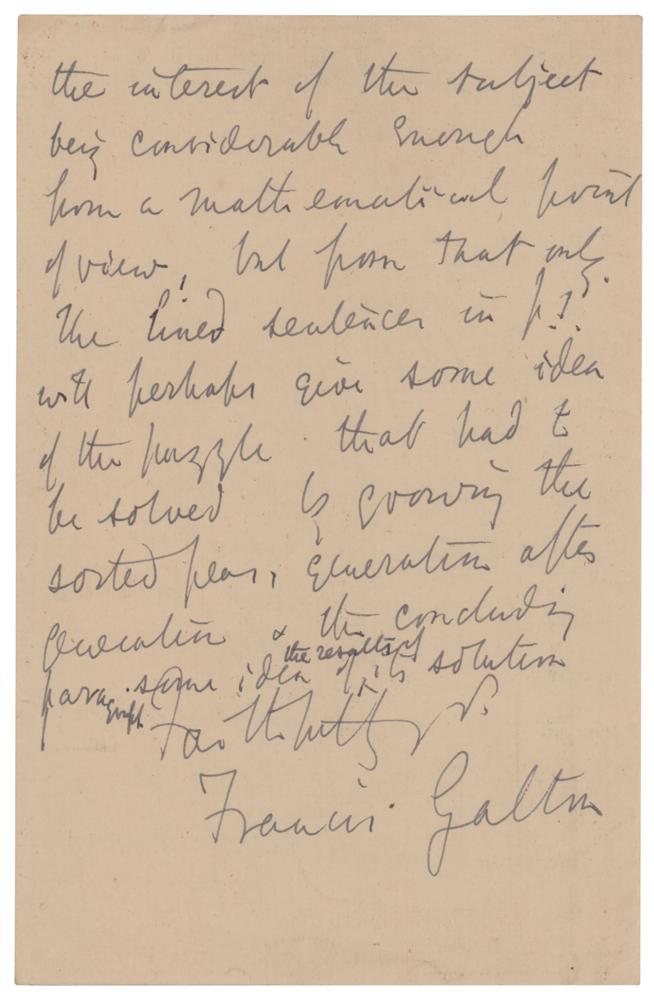 the interest of the subject
being considerable enough
from a mathematical point
of view, but from that only.
The lined sentences in p.
will perhaps give some idea
of the puzzle that had to
be solved by growing the
sorted peas, generation after
generation & the concluding
paragraph some idea of the results of its solution
Faithfully yrs.
Francis Galton